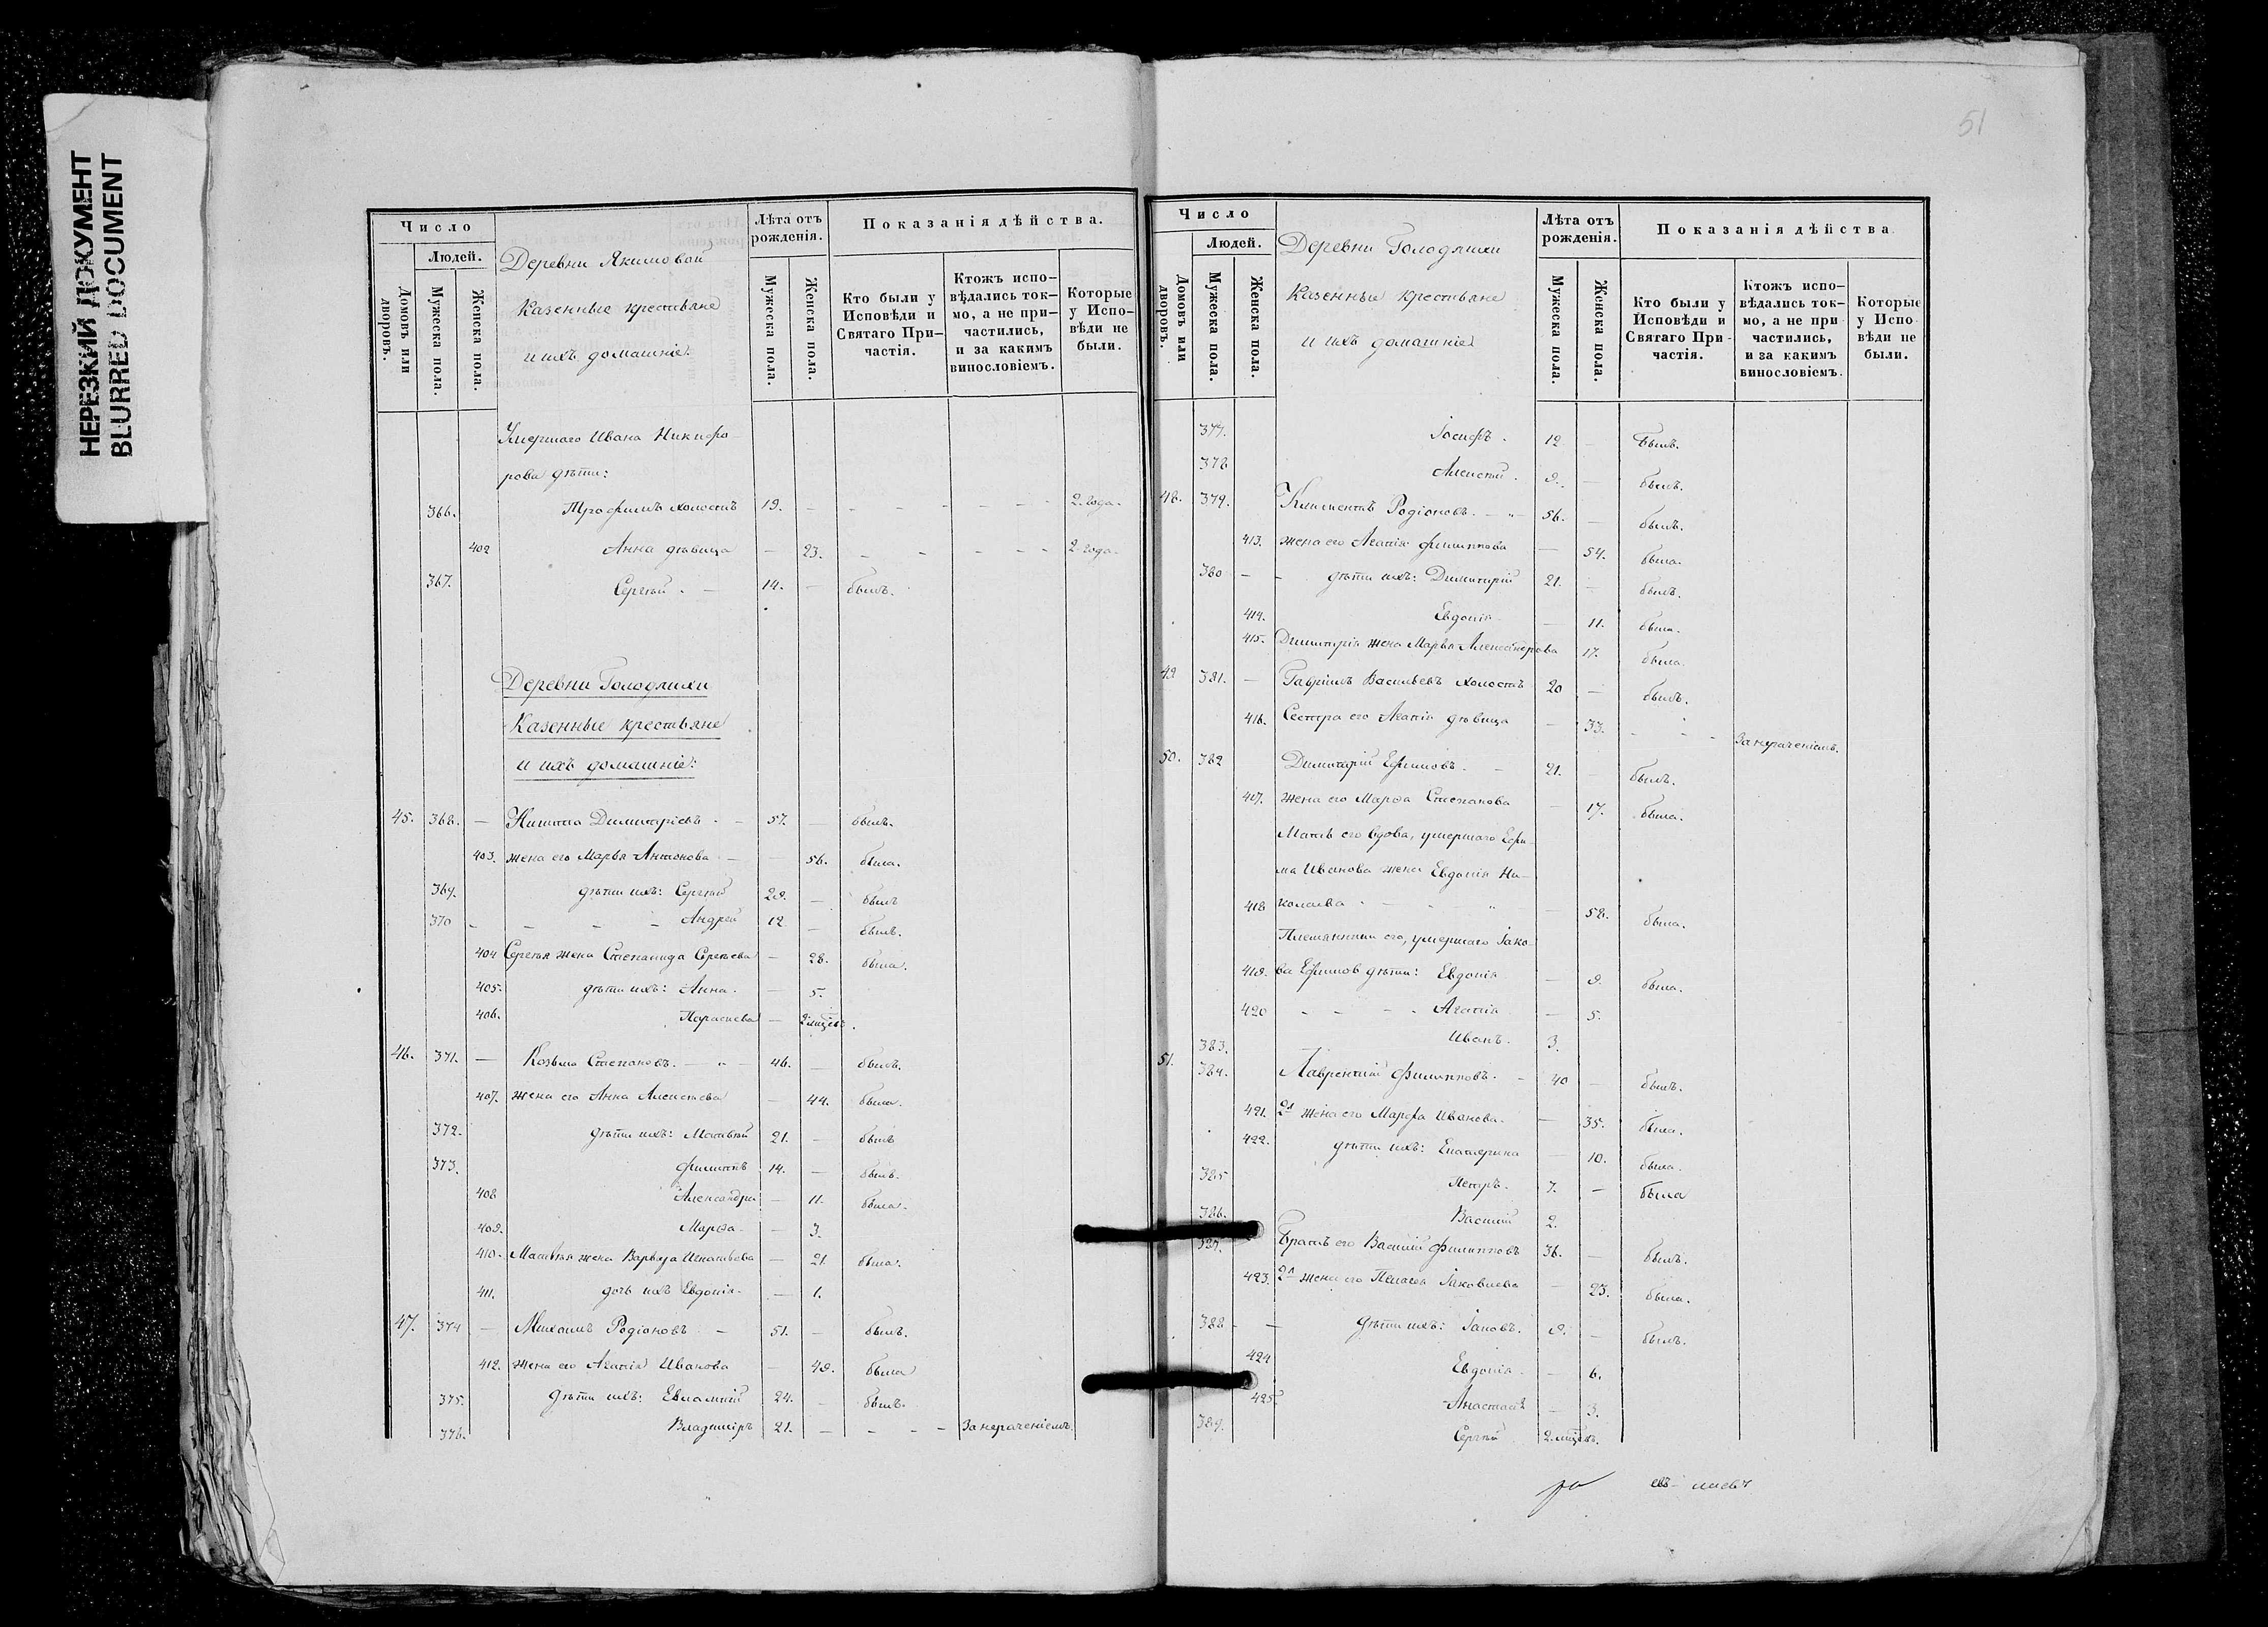 НЕРЕЗКИЙ ДОКУМЕНТ
BLURRED DOCUMENT
Число
Людей.
Домовъ или дворовъ.
Мужеска пола.
Женска пола.
Деревни Якимовой
Казенные крестьяне
и ихъ домашніе:
Лѣта отъ рожденія.
Мужеска пола.
Женска пола.
Показанія дѣйства.
Кто были у Исповѣди и Святаго Причастія.
Ктожъ исповѣдались токмо, а не причастились, и за какимъ винословіемъ.
Которые у Исповѣди не были.
Умершаго Ивана Никифо-
рова дѣти:
366. Трофимъ холостъ 19. - - - - - - 2. года.
402 Анна дѣвица - 23. - - - - - 2 года.
367. Сергѣй. - 14. - былъ.
Деревни Голодяихи
Казенные крестьяне
и ихъ домашніе:
45. 368. - Никита Димитріевъ - - 57. - былъ.
403. жена его Марья Антонова - - 56. была.
369. дѣти ихъ: Сергѣй 29. - былъ
370 - - - - Андрей 12 - былъ.
404 Сергѣя жена Степанида Сергѣева - 28. была.
405. дѣти ихъ: Анна. - 5.
406. Параскева - 2 мѣсяц.
46. 371. - Козьма Степановъ. - " - 46. - былъ.
407. жена его Анна Алексѣева - 44. была.
372. дѣти ихъ: Матвѣй 21. - былъ
373. Филиппъ 14. - былъ.
408 Александра - 11. была.
409. Марѳа - - 3.
410. Матвѣя жена Варвара Игнатьева - 21. была.
411. дочь ихъ Евдокія. - 1.
47. 374 - Михаилъ Родіоновъ - 51. - былъ.
412. жена его Агапія Иванова - 49. была
375. дѣти ихъ: Евлампій 24. - былъ.
376. Владимиръ 21. - - - - За нераченіемъ.
51
Число
Людей.
Домовъ или дворовъ.
Мужеска пола.
Женска пола.
Деревни Голодяихи
Казенные крестьяне
и ихъ домашніе
Лѣта отъ рожденія.
Мужеска пола.
Женска пола.
Показанія дѣйства
Кто были у Исповѣди и Святаго Причастія.
Ктожъ исповѣдались токмо, а не причастились, и за какимъ винословіемъ.
Которые у Исповѣди не были.
377. Іосифъ. 12 - Былъ.
378 Алексѣй. 9. - былъ.
48. 379. Климентъ Родіоновъ. - " - 56. - былъ.
413. жена его Агапія Филиппова - 54. была.
380 - - дѣти ихъ: Димитрій 21. - былъ.
414. Евдокія - - 11. была.
415. Димитрія жена Марья Александрова 17. была.
49 381. - Гавріилъ Васильевъ холостъ 20 - былъ.
416. Сестра его Агапія дѣвица - 33. - - - За нераченіемъ.
50. 382 Димитрій Ефимовъ. - 21. - былъ.
417. жена его Марѳа Степанова - 17. была.
Мать его вдова, умершаго Ефи-
ма Иванова жена Евдокія Ни-
418 колаева - - - " - 58. была.
Племянники его, умершаго Іако-
419. ва Ефимов дѣти: Евдокія - 9. была.
420 - - - - Агапія - 5.
383. Иванъ. 3.
51. 384. Лаврентій Филипповъ. - 40 - былъ.
421. 2я жена его Марѳа Иванова. - 35. была.
422. дѣти ихъ: Екатерина - 10. была.
385 Петръ. 7. - была
386. Василій 2.
387. Братъ его Василій Филипповъ 36. - былъ.
423. 2я жена его Пелагея Іаковлева - 23. была.
388 - - дѣти ихъ: Іаковъ. 9. - былъ.
424 Евдокія. - 6.
425. Анастасія - 3.
389. Сергѣй 2. мѣсяц.